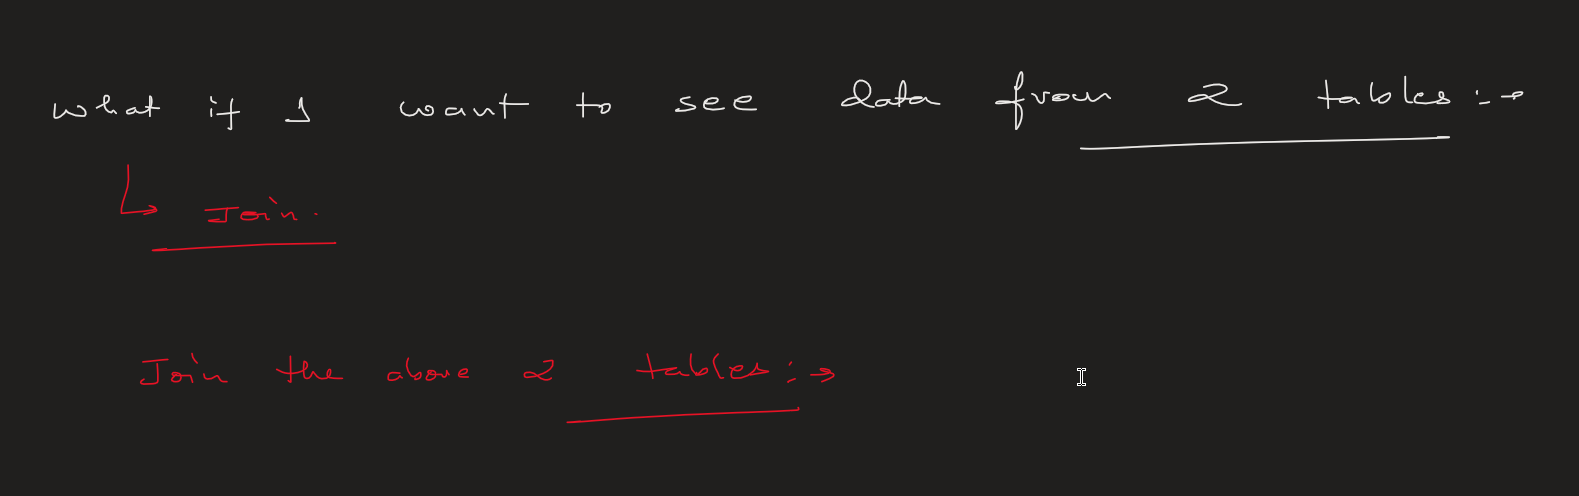 What if I want to see data from 2 tables :→
↳ Join.
Join the above 2 tables :→